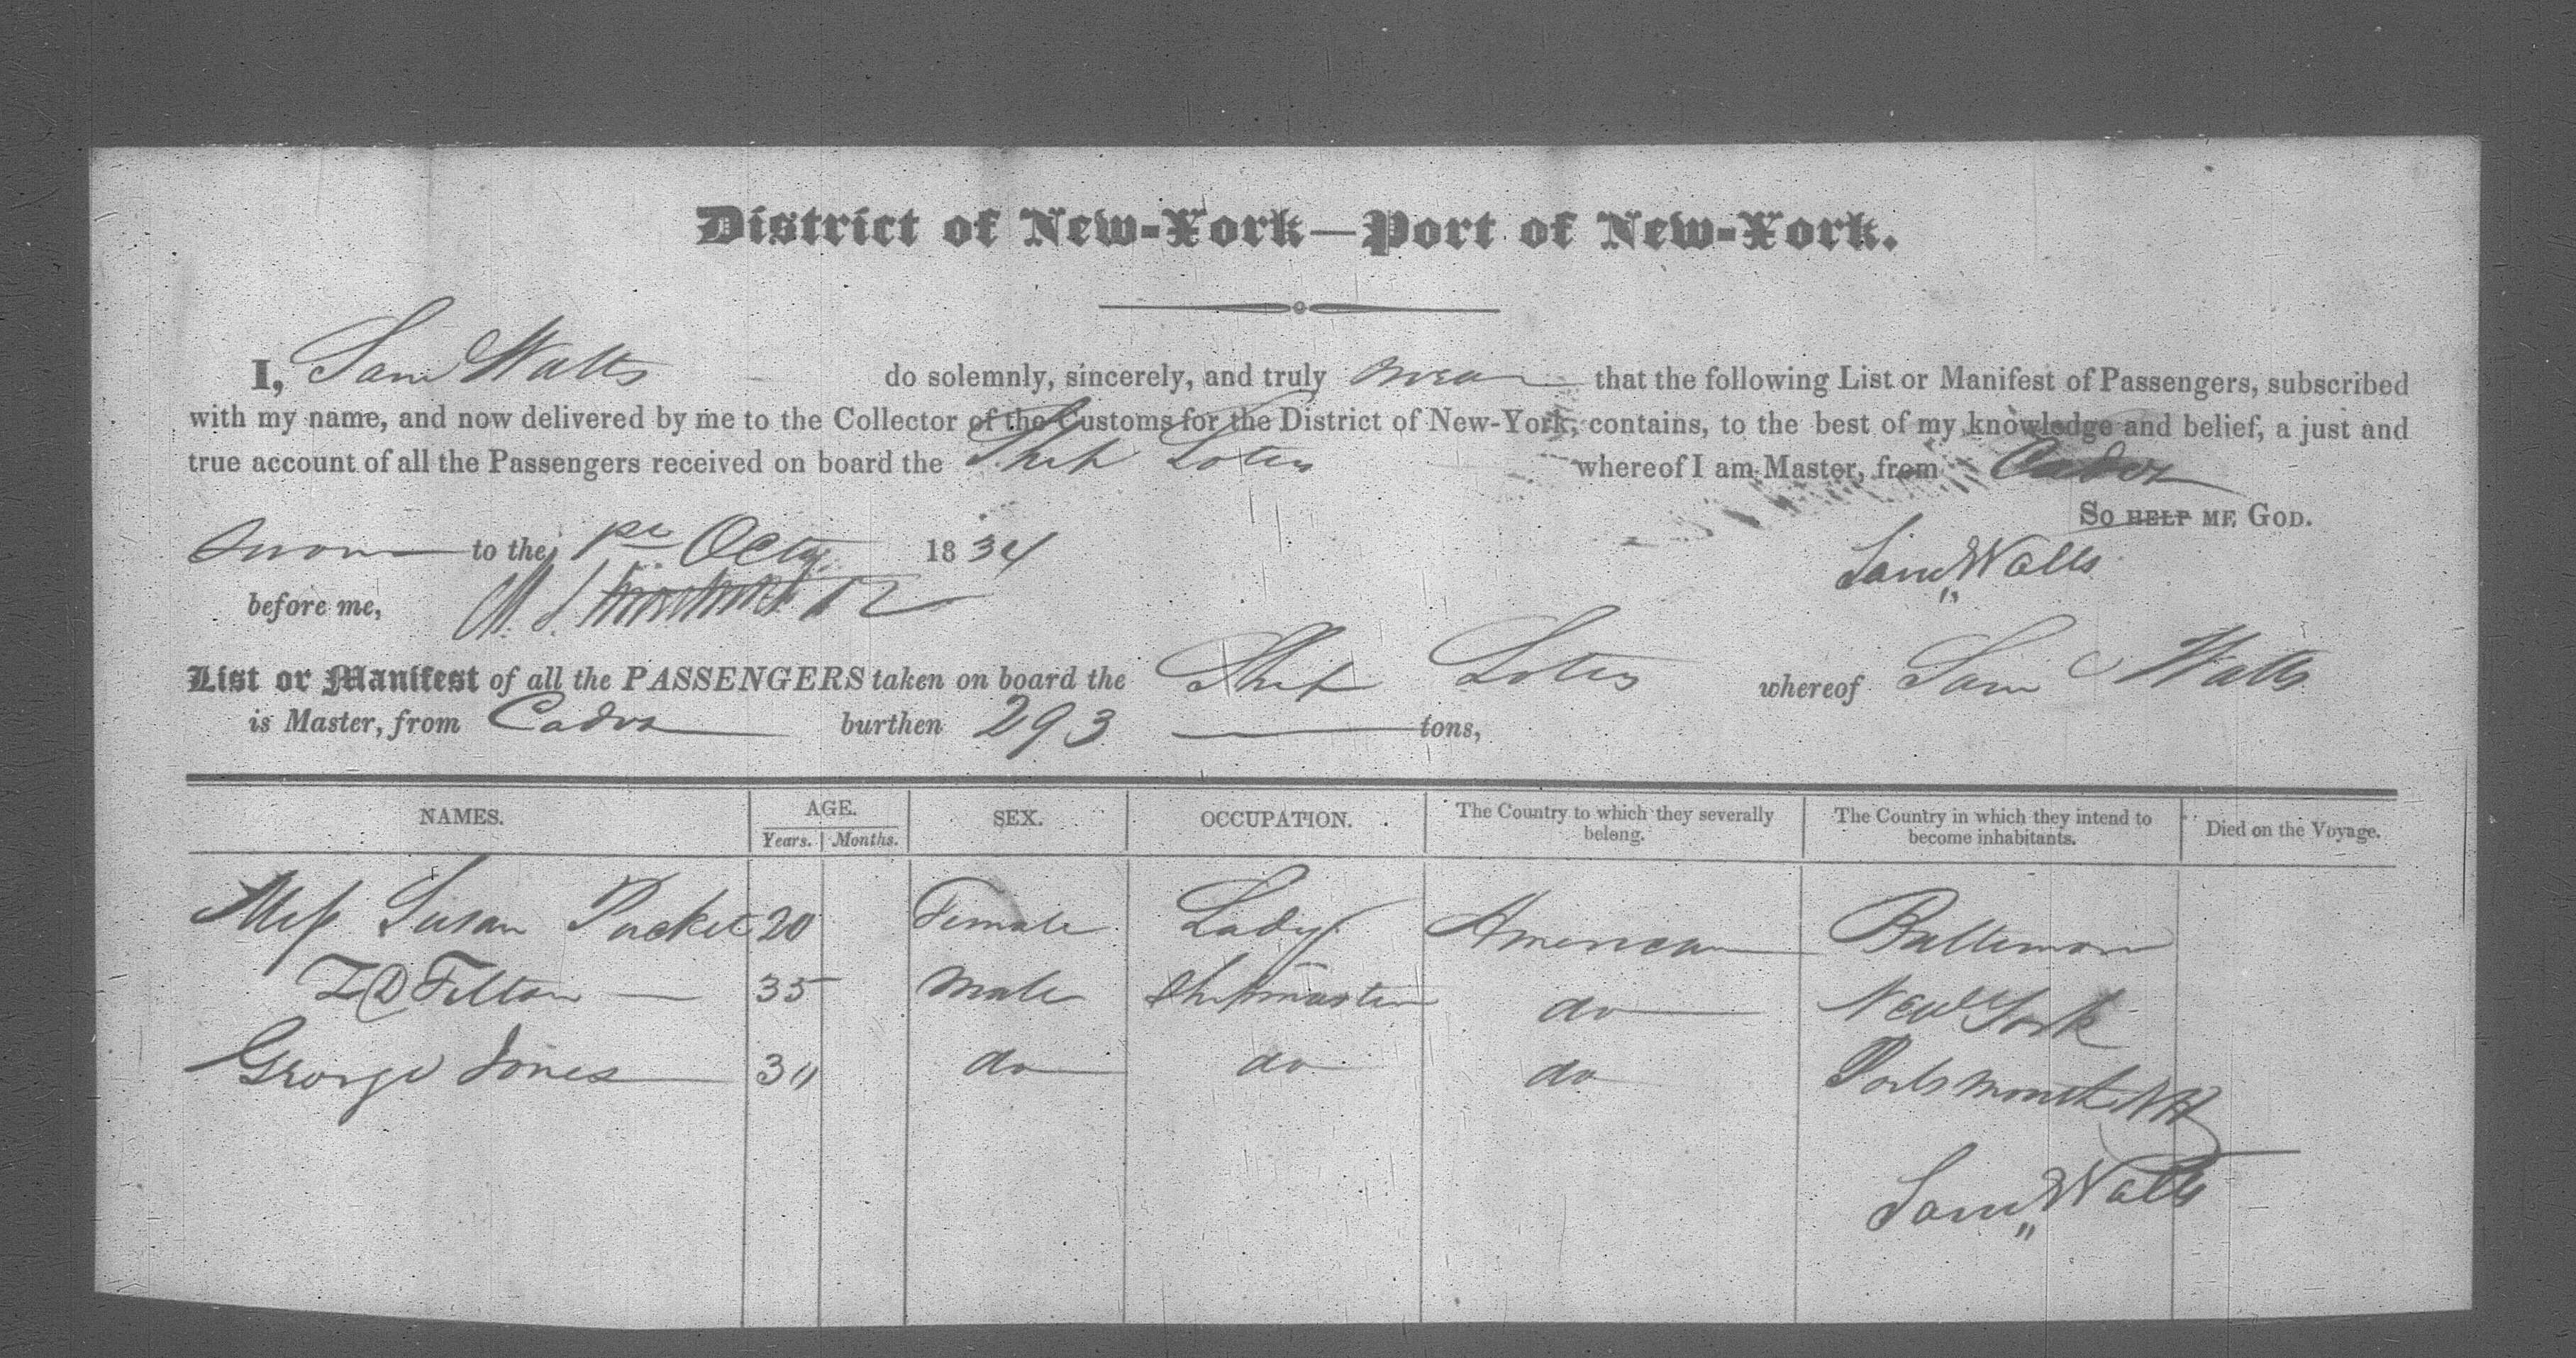 District of New-York—Port of New-York.
I, Sam Walls do solemnly, sincerely, and truly swear that the following List or Manifest of Passengers, subscribed
with my name, and now delivered by me to the Collector of the Customs for the District of New-York, contains, to the best of my knowledge and belief, a just and
true account of all the Passengers received on board the Ship Lotus whereof I am Master, from
So HELP ME GOD.
Sworn to the, Octr 1834
Saml Walls
before me,
List or Manifest of all the PASSENGERS taken on board the Ship Lotus whereof Sam Walls
is Master, from burthen 293 tons,
NAMES. AGE. SEX. OCCUPATION. The Country to which they severally belong. The Country in which they intend to become inhabitants. Died on the Voyage.
Years. Months.
Miss Susan Packet 20 Female Lady American Baltimore
Felton 35 Male Shipmaster do New York
George Jones do do do Portsmouth NH
Saml Walls